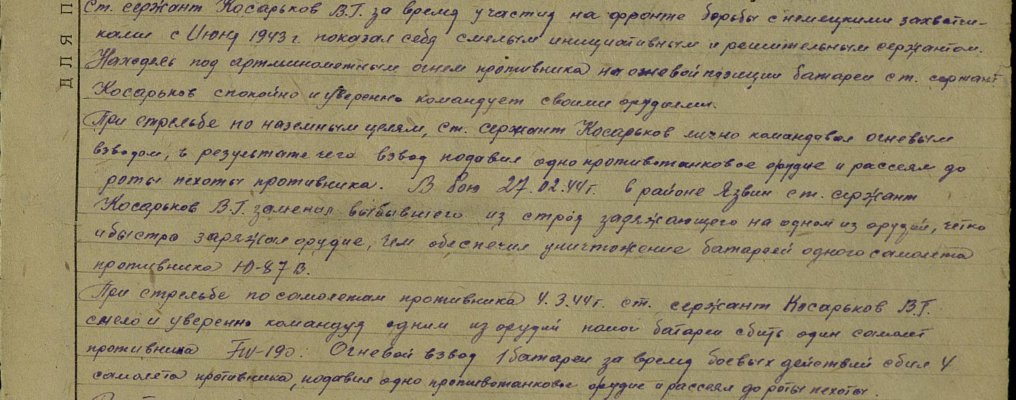 Ст. сержант Косарьков В.Г. за время участия на фронте борьбы с немецкими захватчи-
ками с Июня 1943 г. показал себя смелым инициативным и решительным сержантом.
Находясь под артминометным огнем противника на огневой позиции батареи ст. сержант
Косарьков спокойно и уверенно командует своими орудиями.
При стрельбе по наземным целям, ст. сержант Косарьков лично командовал огневым
взводом, в результате чего взвод подавил одно противотанковое орудие и рассеял до
роты пехоты противника. В бою 27.02.44 г. в районе Язвин ст. сержант
Косарьков В.Г. заменил выбывшего из строя заряжающего на одном из орудий, четко
и быстро заряжал орудие, чем обеспечил уничтожение батареей одного самолета
противника Ю-87 В.
При стрельбе по самолетам противника 4.3.44 г. ст. сержант Косарьков В.Г.
смело и уверенно командуя одним из орудий помог батареи сбить один самолет
противника FW-190. Огневой взвод 1 батареи за время боевых действий сбил 4
самолета противника, подавил одно противотанковое орудие и рассеял до роты пехоты.
ДЛЯ П